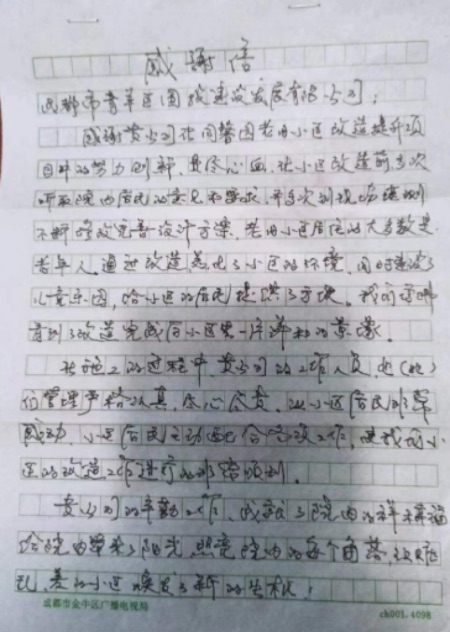 感谢信
成都市青羊区国投建设发展有限公司:
感谢贵公司在同馨园老旧小区改造提升项
目中的努力创新,费尽心血,在小区改造前多次
听取院内居民的意见和要求,并多次到现场
不断修改完善设计方案,老旧小区居住的大多数是
老年人,通过改造美化了小区的环境,同时建设了
儿童乐园,给小区的居民提供了方便。我们
看到了改造完成后小区里一片祥和的景象。
在施工的过程中,贵公司的工作人员,他(她)
们管理严格认真,尽心尽责,让小区居民非常
感动,小区居民主动配合改造工作,使我们小
区的改造工作进行的非常顺利。
贵公司的辛勤工作,成就了院内的祥和幸福
给院内带来了阳光,照亮院内的每个角落,
美的小区焕发了新的生机!
成都市金牛区广播电视局
ch001.4098